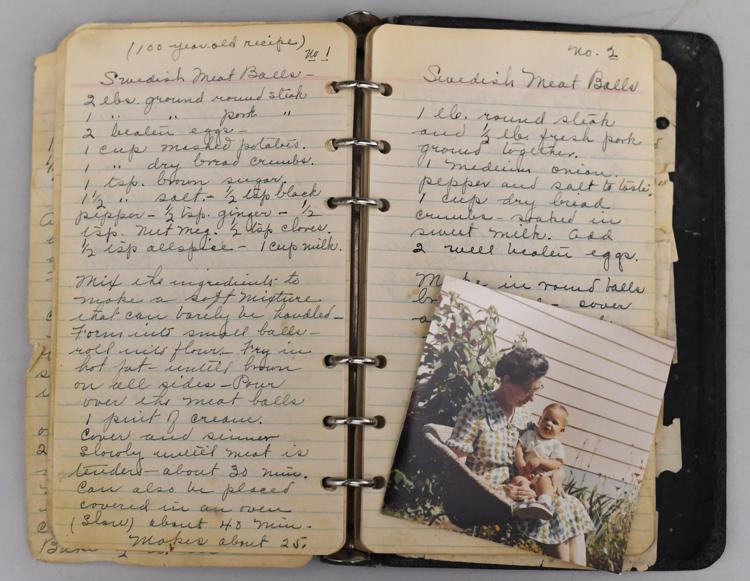 (100-year-old recipe)
No 1
Swedish Meat Balls -
2 lbs. ground round steak
1 " " pork "
2 beaten eggs -
1 cup mashed potatoes.
1 " dry bread crumbs.
1 tsp. brown sugar.
1 1/2 " salt. - 1/2 tsp black
pepper - 1/2 tsp. ginger - 1/2
tsp. Nutmeg. 1/2 tsp cloves.
1/2 tsp allspice - 1 cup milk.
Mix the ingredients to
make a soft mixture
that can barely be handled -
Form into small balls -
roll into flour - Fry in
hot fat - until brown
on all sides - Pour
over the meat balls
1 pint of cream.
Cover and simmer
slowly until meat is
tender - about 30 min.
Can also be placed
covered in an oven
(Slow) about 40 min -
Makes about 25.
No. 2
Swedish Meat Balls
1 lb. round steak
and 1/2 lb. fresh pork
ground together.
1 medium onion.
pepper and salt to taste.
1 cup dry bread
crumbs - soaked in
sweet milk. Add
2 well beaten eggs.
Make in round balls